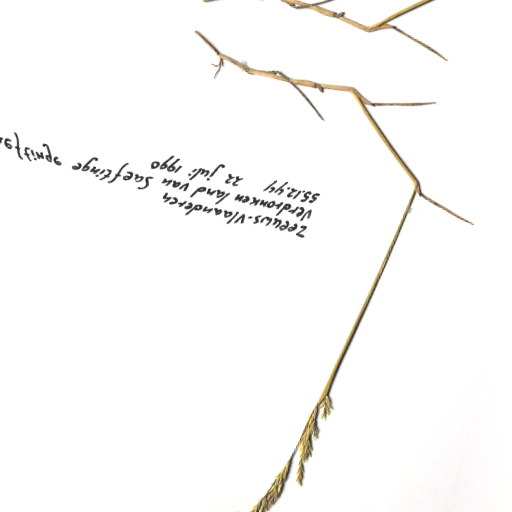 Zeeuws-Vlaanderen
Verdronken land van Saeftinge
55.12.44 22 juli 1990